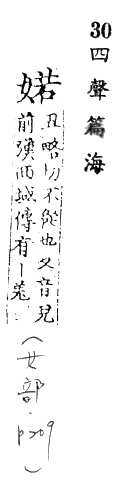 30 四聲篇海
婼
丑略切不從也又音兒
前漢西域傳有丨羌
(女部.p209)